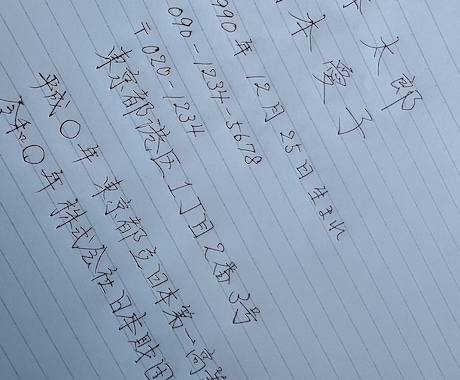 太郎
本 愛子
990年 12月 25日 生まれ
090-1234-5678
〒020-1234
東京都港区1丁目2番3号
平成〇年 東京都立日本第一高等
令和〇年 株式会社日本財団